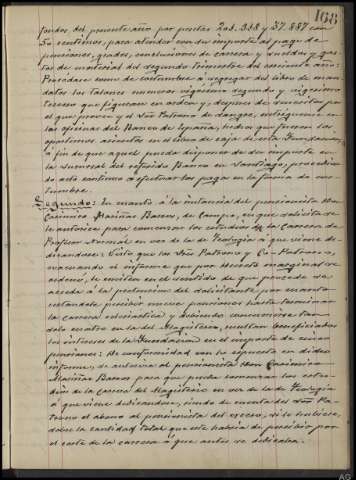 168
fondos del presente año por pesetas 203.338 y 37.887 con
50 centimos, para atender con su importe al pago de
pensiones, grados, conclusiones de carrera y sueldos y gas-
tos de material del segundo trimestre del corriente año:
Procédase como de costumbre á segregar del libro de man-
datos los talones numeros vigésimo segundo y vigésimo
tercero que figuran en orden y, despues de suscritos por
el que provee y el Sr. Patrono de sangre, entréguense en
las oficinas del Banco de España, tredan que fueren los
oportunos asientos en el libro de caja de esta Fundacion,
á fin de que aquel pueda disponer de su importe en
la sucursal del referido Banco en Santiago, procedien-
do acto continuo á efectuar los pagos en la forma de cos-
tumbre.
Segundo: En cuanto á la instancia del pensionista Don
Casimiro Mariñas Barros, de Campo, en que solicita se
le autorice para comenzar los estudios de la Carrera de
Profesor Normal en vez de la de Teología á que viene de-
dicandose: Visto que los Sres. Patrono y Co-Patrono,
evacuando el informe que por decreto marginal se
acordó, le emiten en el sentido de que procede se
acceda á la pretension del solicitante, por cuanto
restandole percibir nueve pensiones hasta terminar
la carrera eclesiástica y debiendo concurrirse tan
solo cuatro en la del Magisterio, resultan beneficiados
los intereses de la Fundacion en el importe de cinco
pensiones: De conformidad con lo expuesto en dicho
informe, se autoriza al pensionista Don Casimiro
Mariñas Barros para que pueda comenzar los estu-
dios de la carrera del Magisterio en vez de la de Teología
á que viene dedicandose, siendo de cuenta del Sr. Pa-
trono el abono al pensionista del exceso, si lo hubiese,
sobre la cantidad total que este habría de percibir por
el coste de la carrera á que antes se dedicaba.
AG